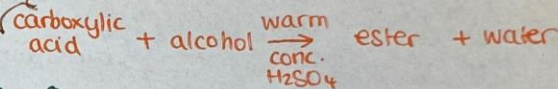 carboxylic acid + alcohol warm → conc. H2SO4 ester + water